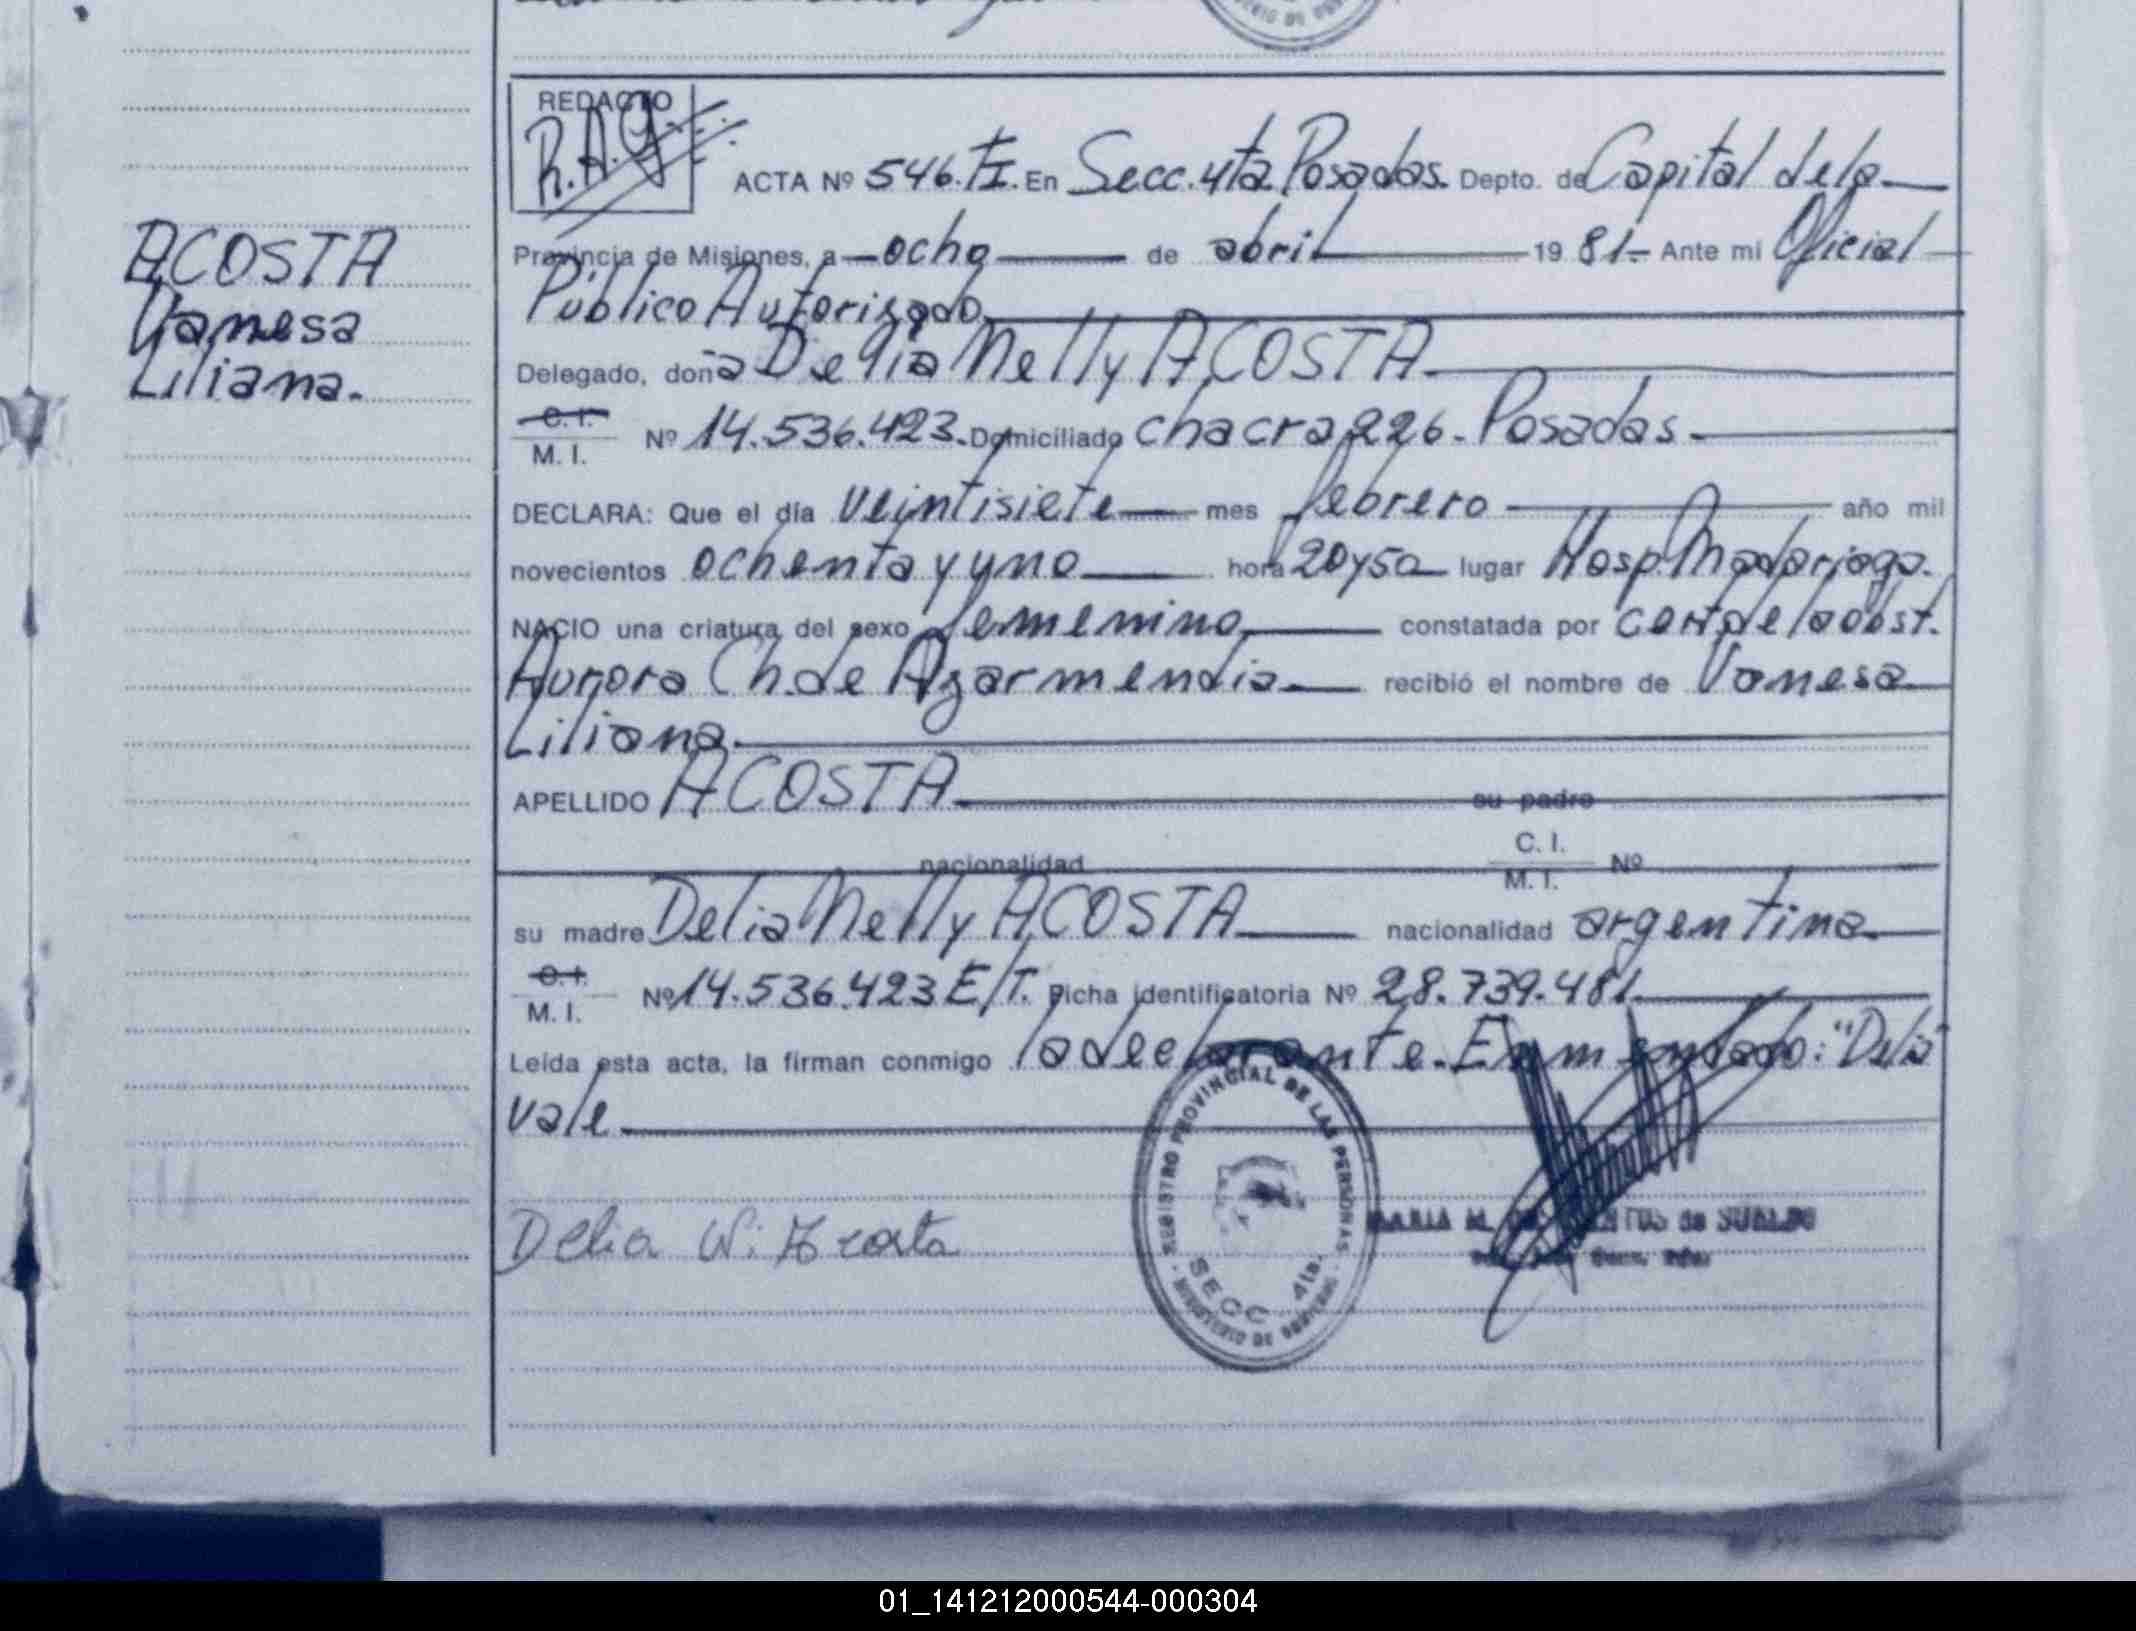 REDACTO
R.A.G.
ACTA Nº 546. TI. En Secc. 4ta Posadas. Depto. de Capital de la
ACOSTA
Vanesa
Liliana.
Provincia de Misiones, a ocho de abril 19 81.- Ante mi Oficial
Público Autorizado
Delegado, doña Delia Nelly ACOSTA.
C. I.
M. I. Nº 14.536.423. Domiciliado chacra 226. Posadas.
DECLARA: Que el día veintisiete mes febrero año mil
novecientos ochenta y uno hora 20y50 lugar Hosp. Madariaga.
NACIO una criatura del sexo femenino, constatada por cert de la obst.
Aurora Ch. de Azarmendia recibió el nombre de Vanesa
Liliana.
APELLIDO ACOSTA su padre
nacionalidad C. I.
M. I. Nº
su madre Delia Nelly ACOSTA nacionalidad argentina
C. I.
M. I. Nº 14.536.423 E/T. Ficha identificatoria Nº 28.739.481
Leída esta acta, la firman conmigo la declarante. Enmendado: "Delia"
vale
REGISTRO PROVINCIAL DE LAS PERSONAS
SECC. 4ta.
MINISTERIO DE GOBIERNO
MARIA de SUELDO
Delia N. Acosta
01_141212000544-000304